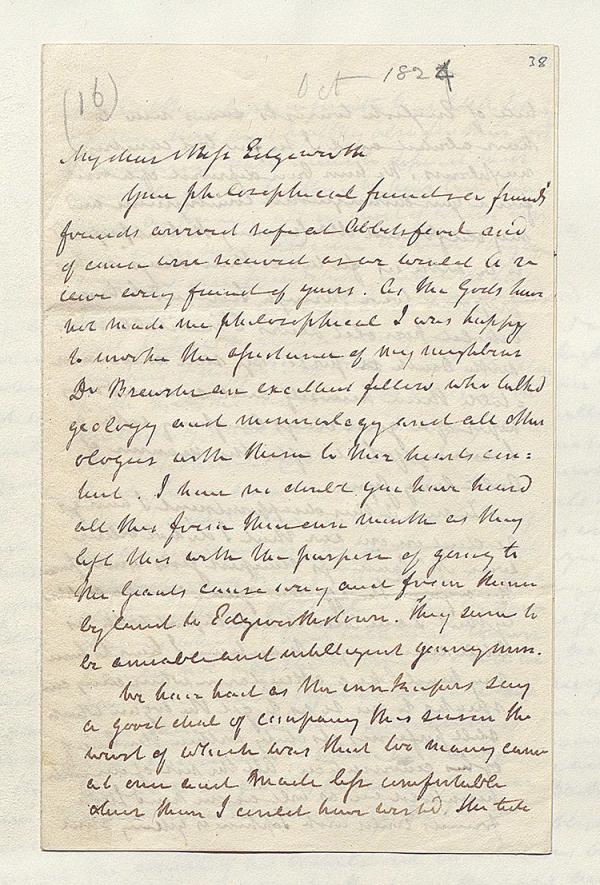 38
Oct 1824
(16)
My dear Miss Edgeworth
Your philosophical friends or friend's
friends arrived safe at Abbotsford and
of course were received as we would re
ceive every friend of yours. As the Gods have
not made me philosophical I was happy
to invoke the assistance of my neighbour
Dr Brewster an excellent fellow who talkd
geology and mineralogy and all other
ologies with them to their hearts con=
tent. I have no doubt you have heard
all this from their own mouth as they
left this with the purpose of going to
the Giants causeway and from thence
by land to Edgeworthstown. They seem to
be amiable and intelligent young men.
We have had as the innkeepers say
a good deal of company this season the
worst of which was that too many came
at once and made less comfortable
than I could have wishd. The tide